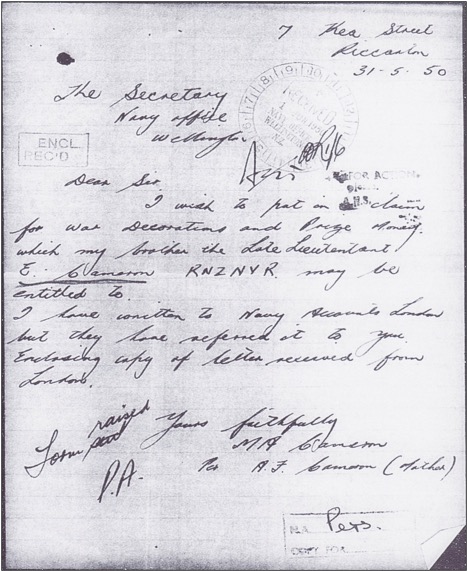 7 Rhea Street
Riccarton
31-5.50
The Secretary
Navy office
Wellington
ENCL
REC'D
RECEIVED
NAVY
FOR ACTION
Dear Sir
I wish to put in claim
for war Decorations and Prize Money
which my brother the Late Lieutentant
E. Cameron RNZNVR. may be
entitled to.
I have written to Navy Accounts London
but they have referred it to you
Enclosing copy of letter received from
London.
Yours faithfully
MA Cameron
Per A.F. Cameron (Mother)
Form raised
P.A.
N.A. Pers.
COPY TO